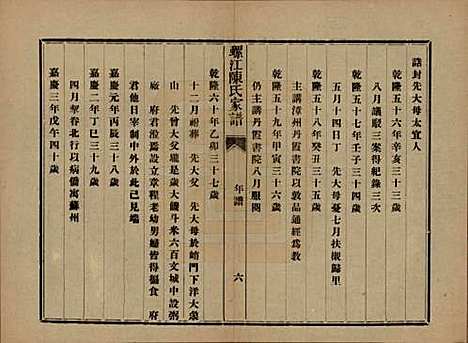 誥封先大母太宜人
乾隆五十六年辛亥三十三歲
八月議敍三案得紀錄三次
乾隆五十七年壬子三十四歲
五月十四日丁 先大母憂七月扶櫬歸里
乾隆五十八年癸丑三十五歲
主講漳州丹霞書院以敦品通經爲敎
乾隆五十九年甲寅三十六歲
仍主講丹霞書院八月服闋
螺江陳氏家譜
年譜
六
乾隆六十年乙卯三十七歲
十二月祔葬 先大父 先大母於嶠門下洋大𡶶
山 先曾大父壠是歲大饑斗米六百文城中設粥
廠 府君涖爲設立章程老幼男婦皆得徧食 府
君他日宰制中外於此已見端
嘉慶元年丙辰三十八歲
嘉慶二年丁巳三十九歲
四月挈眷北行以病僑寓蘇州
嘉慶三年戊午四十歲